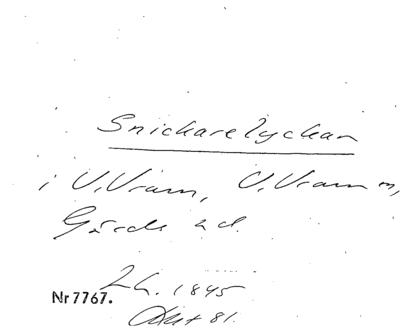 Snickarelyckan
i V. Vram, V. Vram m,
Gärds hd.
Lh. 1845
Nr 7767.
Akt 81.